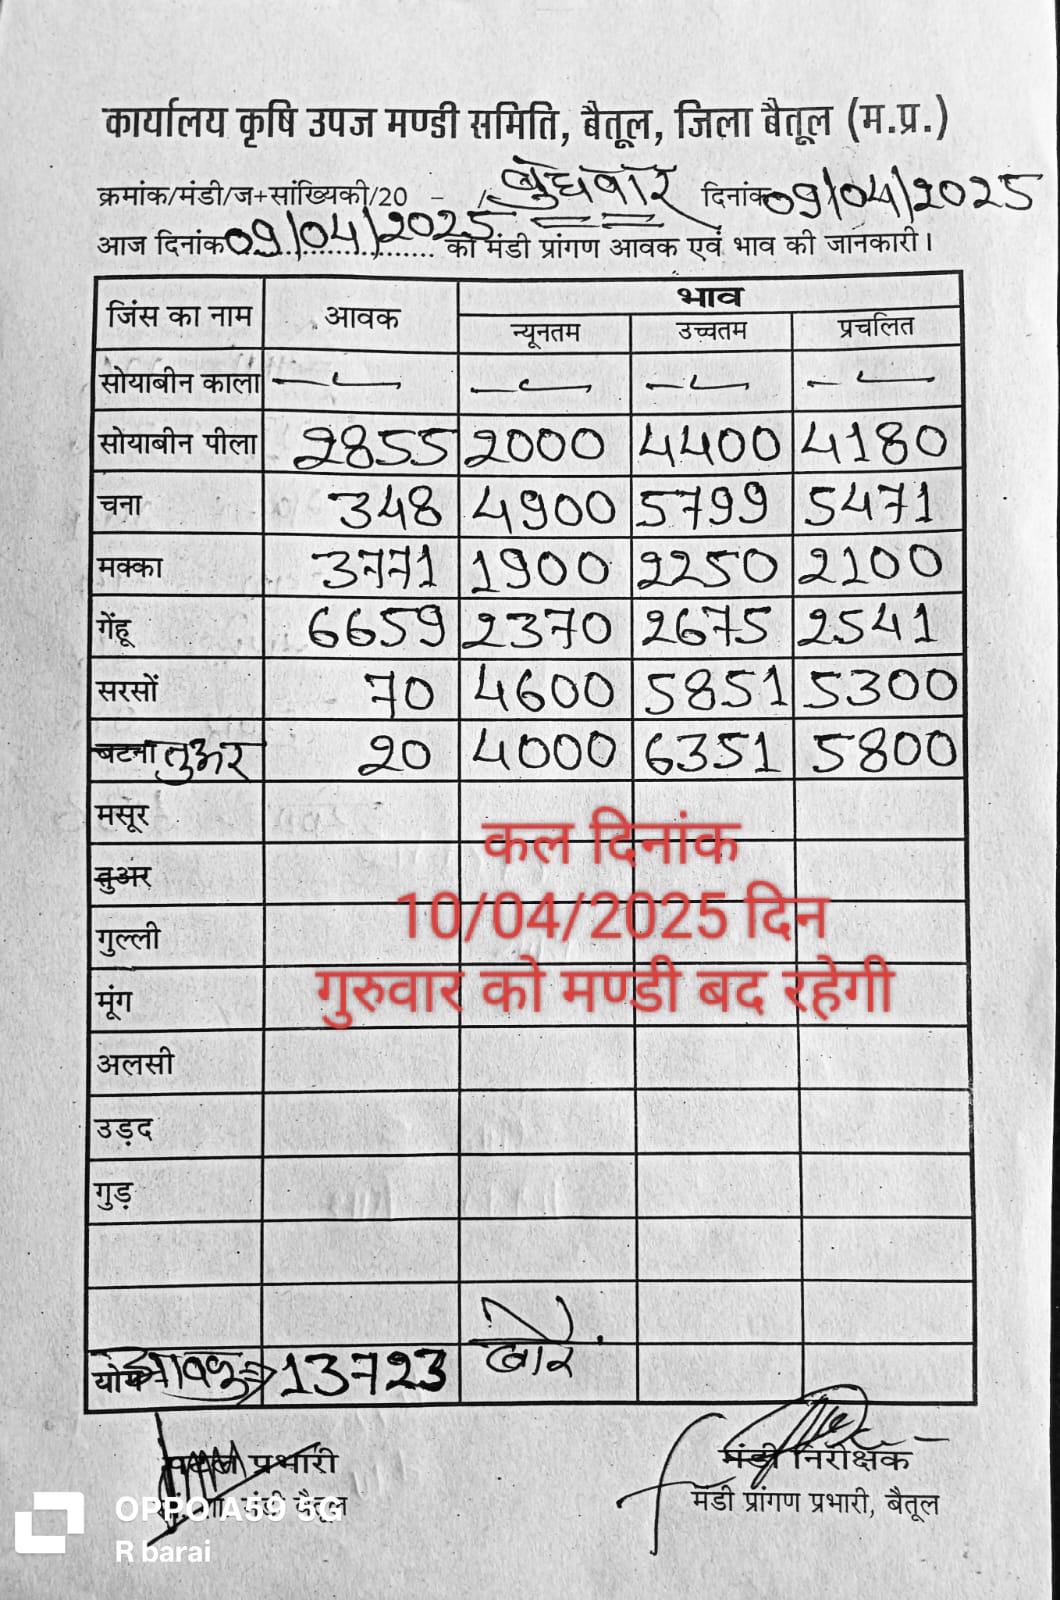 कार्यालय कृषि उपज मण्डी समिति, बैतूल, जिला बैतूल (म.प्र.)
क्रमांक/मंडी/ज+सांख्यिकी/20 - / बुधवार दिनांक 09/04/2025
आज दिनांक 09/04/2025 को मंडी प्रांगण आवक एवं भाव की जानकारी।
जिंस का नाम आवक भाव
न्यूनतम उच्चतम प्रचलित
सोयाबीन काला — — — —
सोयाबीन पीला 2855 2000 4400 4180
चना 348 4900 5799 5471
मक्का 3771 1900 2250 2100
गेंहू 6659 2370 2675 2541
सरसों 70 4600 5851 5300
बटना तुअर 20 4000 6351 5800
मसूर
तुअर
गुल्ली
मूंग
अलसी
उड़द
गुड़
कल दिनांक
10/04/2025 दिन
गुरुवार को मण्डी बद रहेगी
आवक 13723
प्रभारी
मंडी बैतूल
मंडी निरीक्षक
मंडी प्रांगण प्रभारी, बैतूल
OPPO A59 5G
R barai